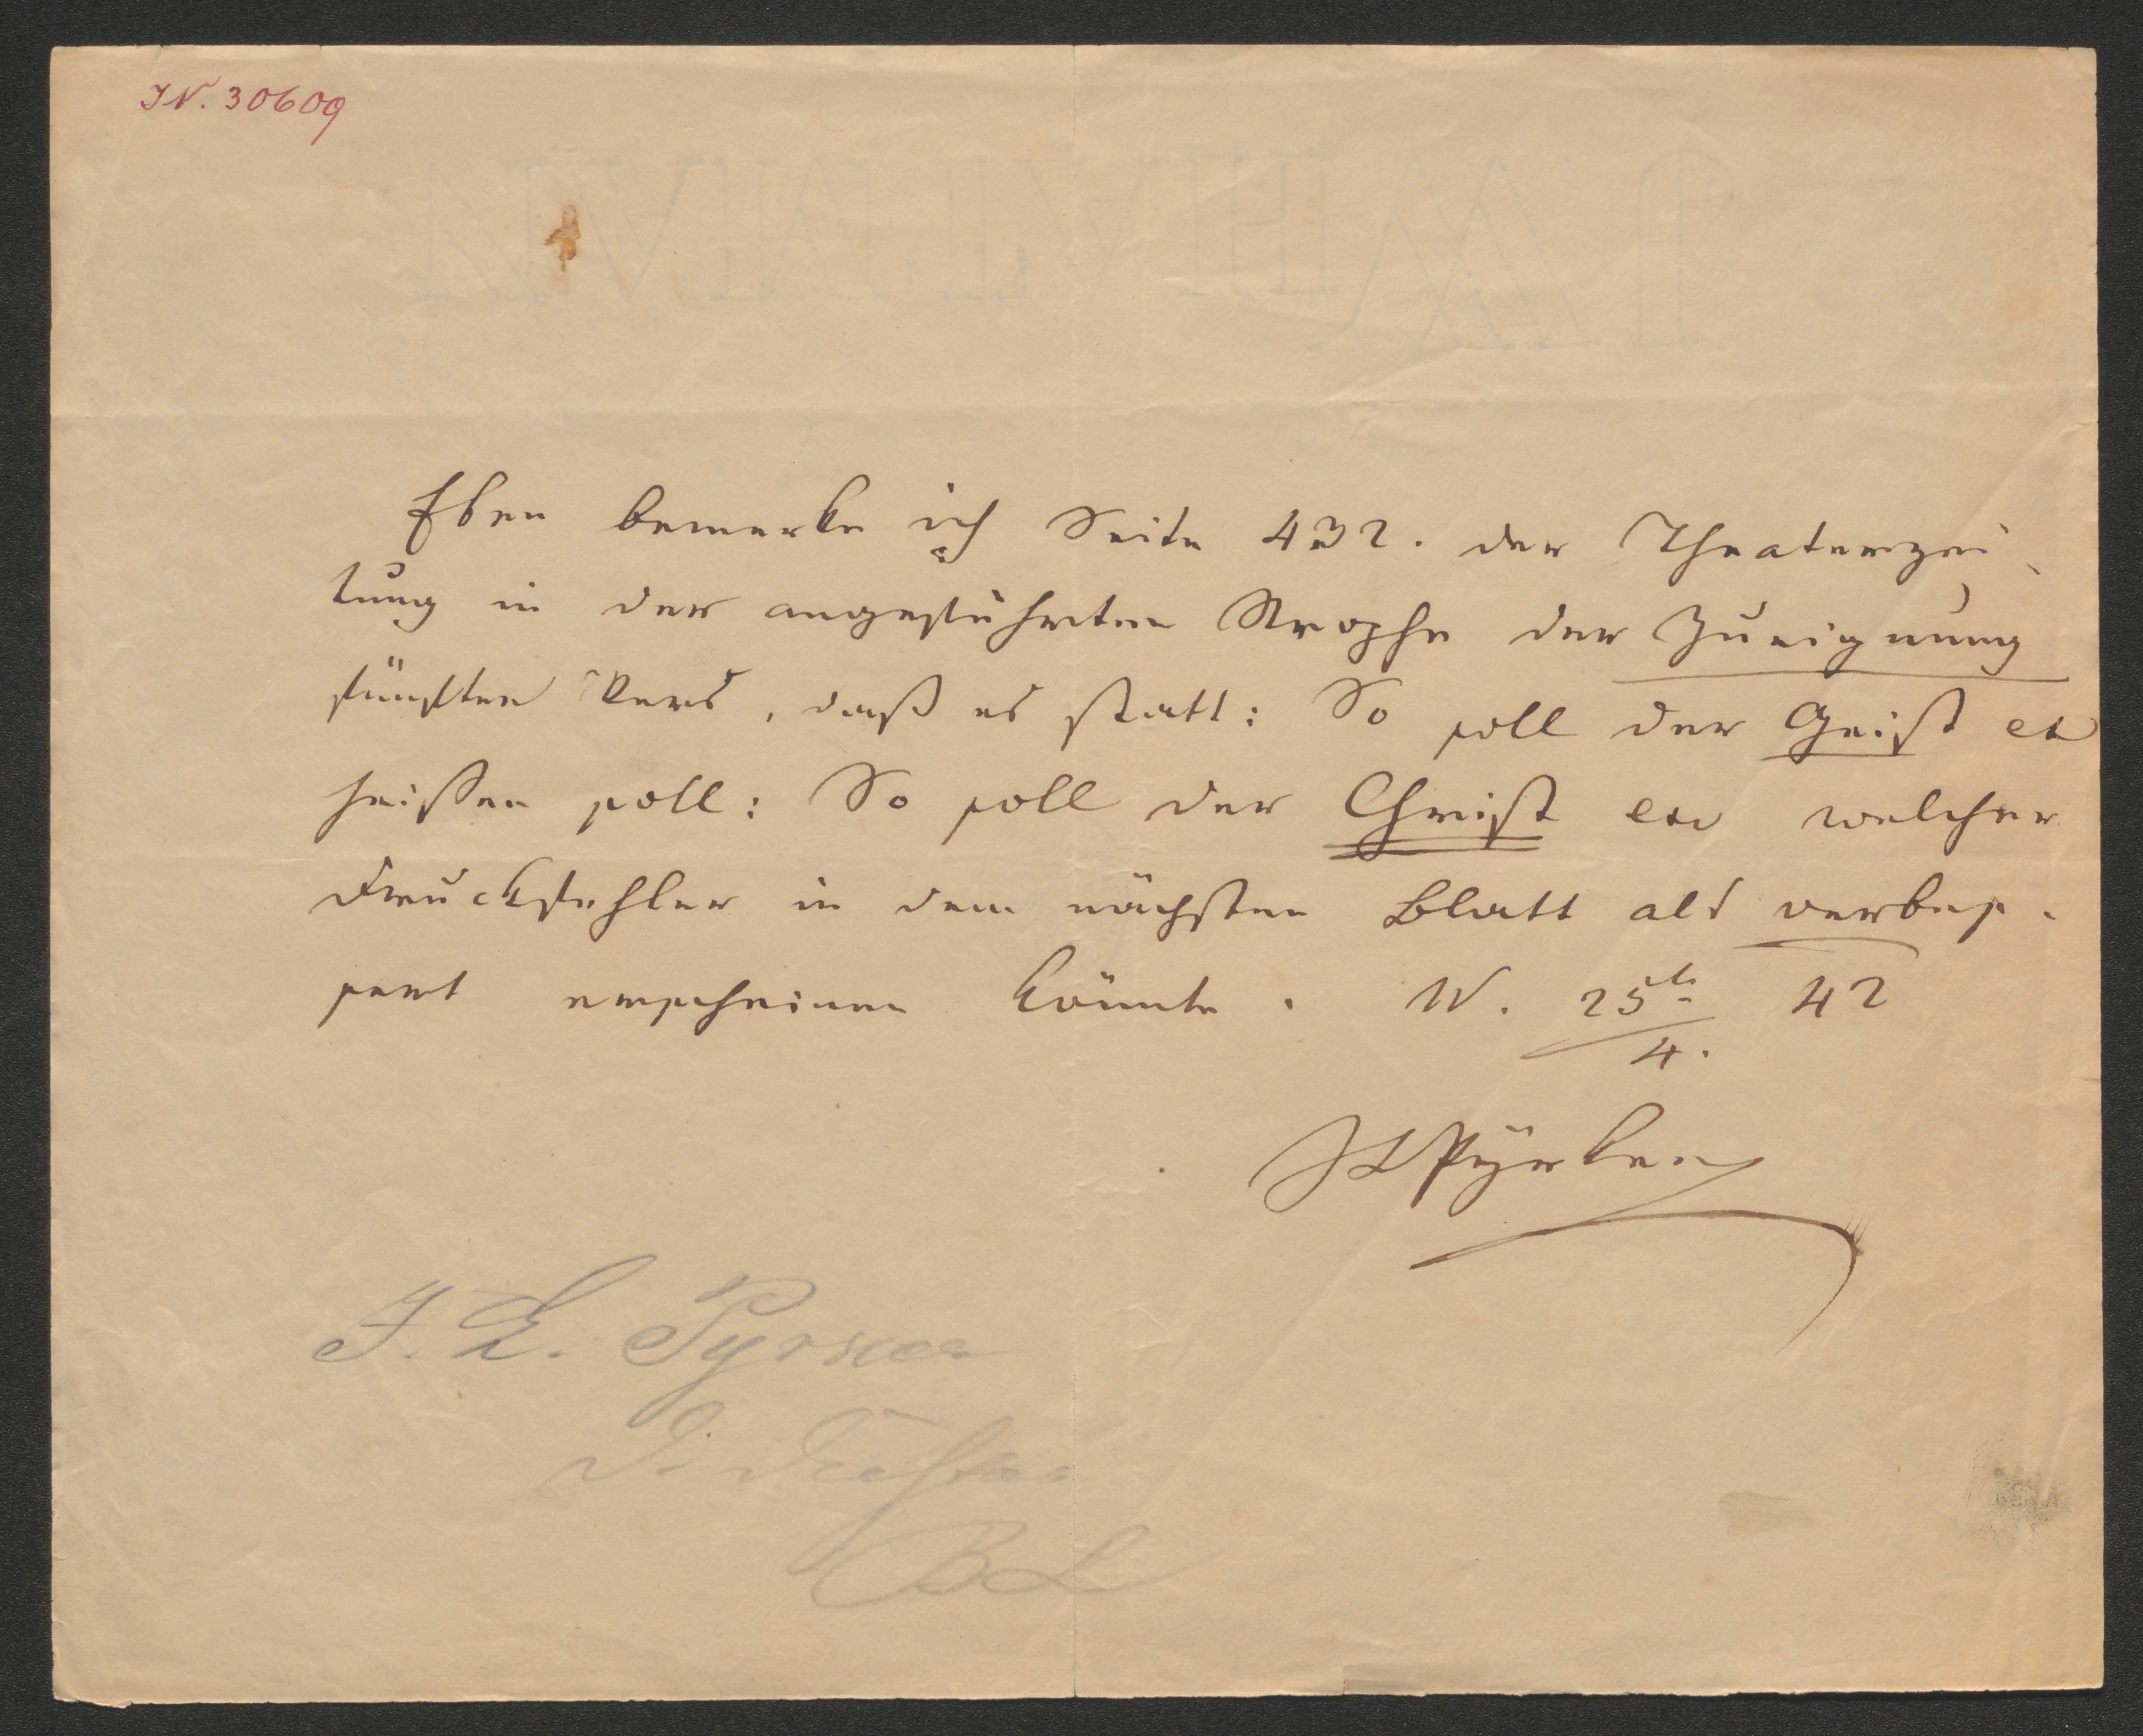 IN. 30609
Eben bemerke ich Seite 432. der Theaterzei-
tung in der angeführten Strophe der Zueignung
fünften Vers, daß es statt: So soll der Geist et
heißen soll: So soll der Christ etc welcher
Druckfehler in dem nächsten Blatt als verbes-
sert erscheinen könnte. W. 25t 42
4.
JLPÿrker
J. L. Pyrker
d. Dichter
BL